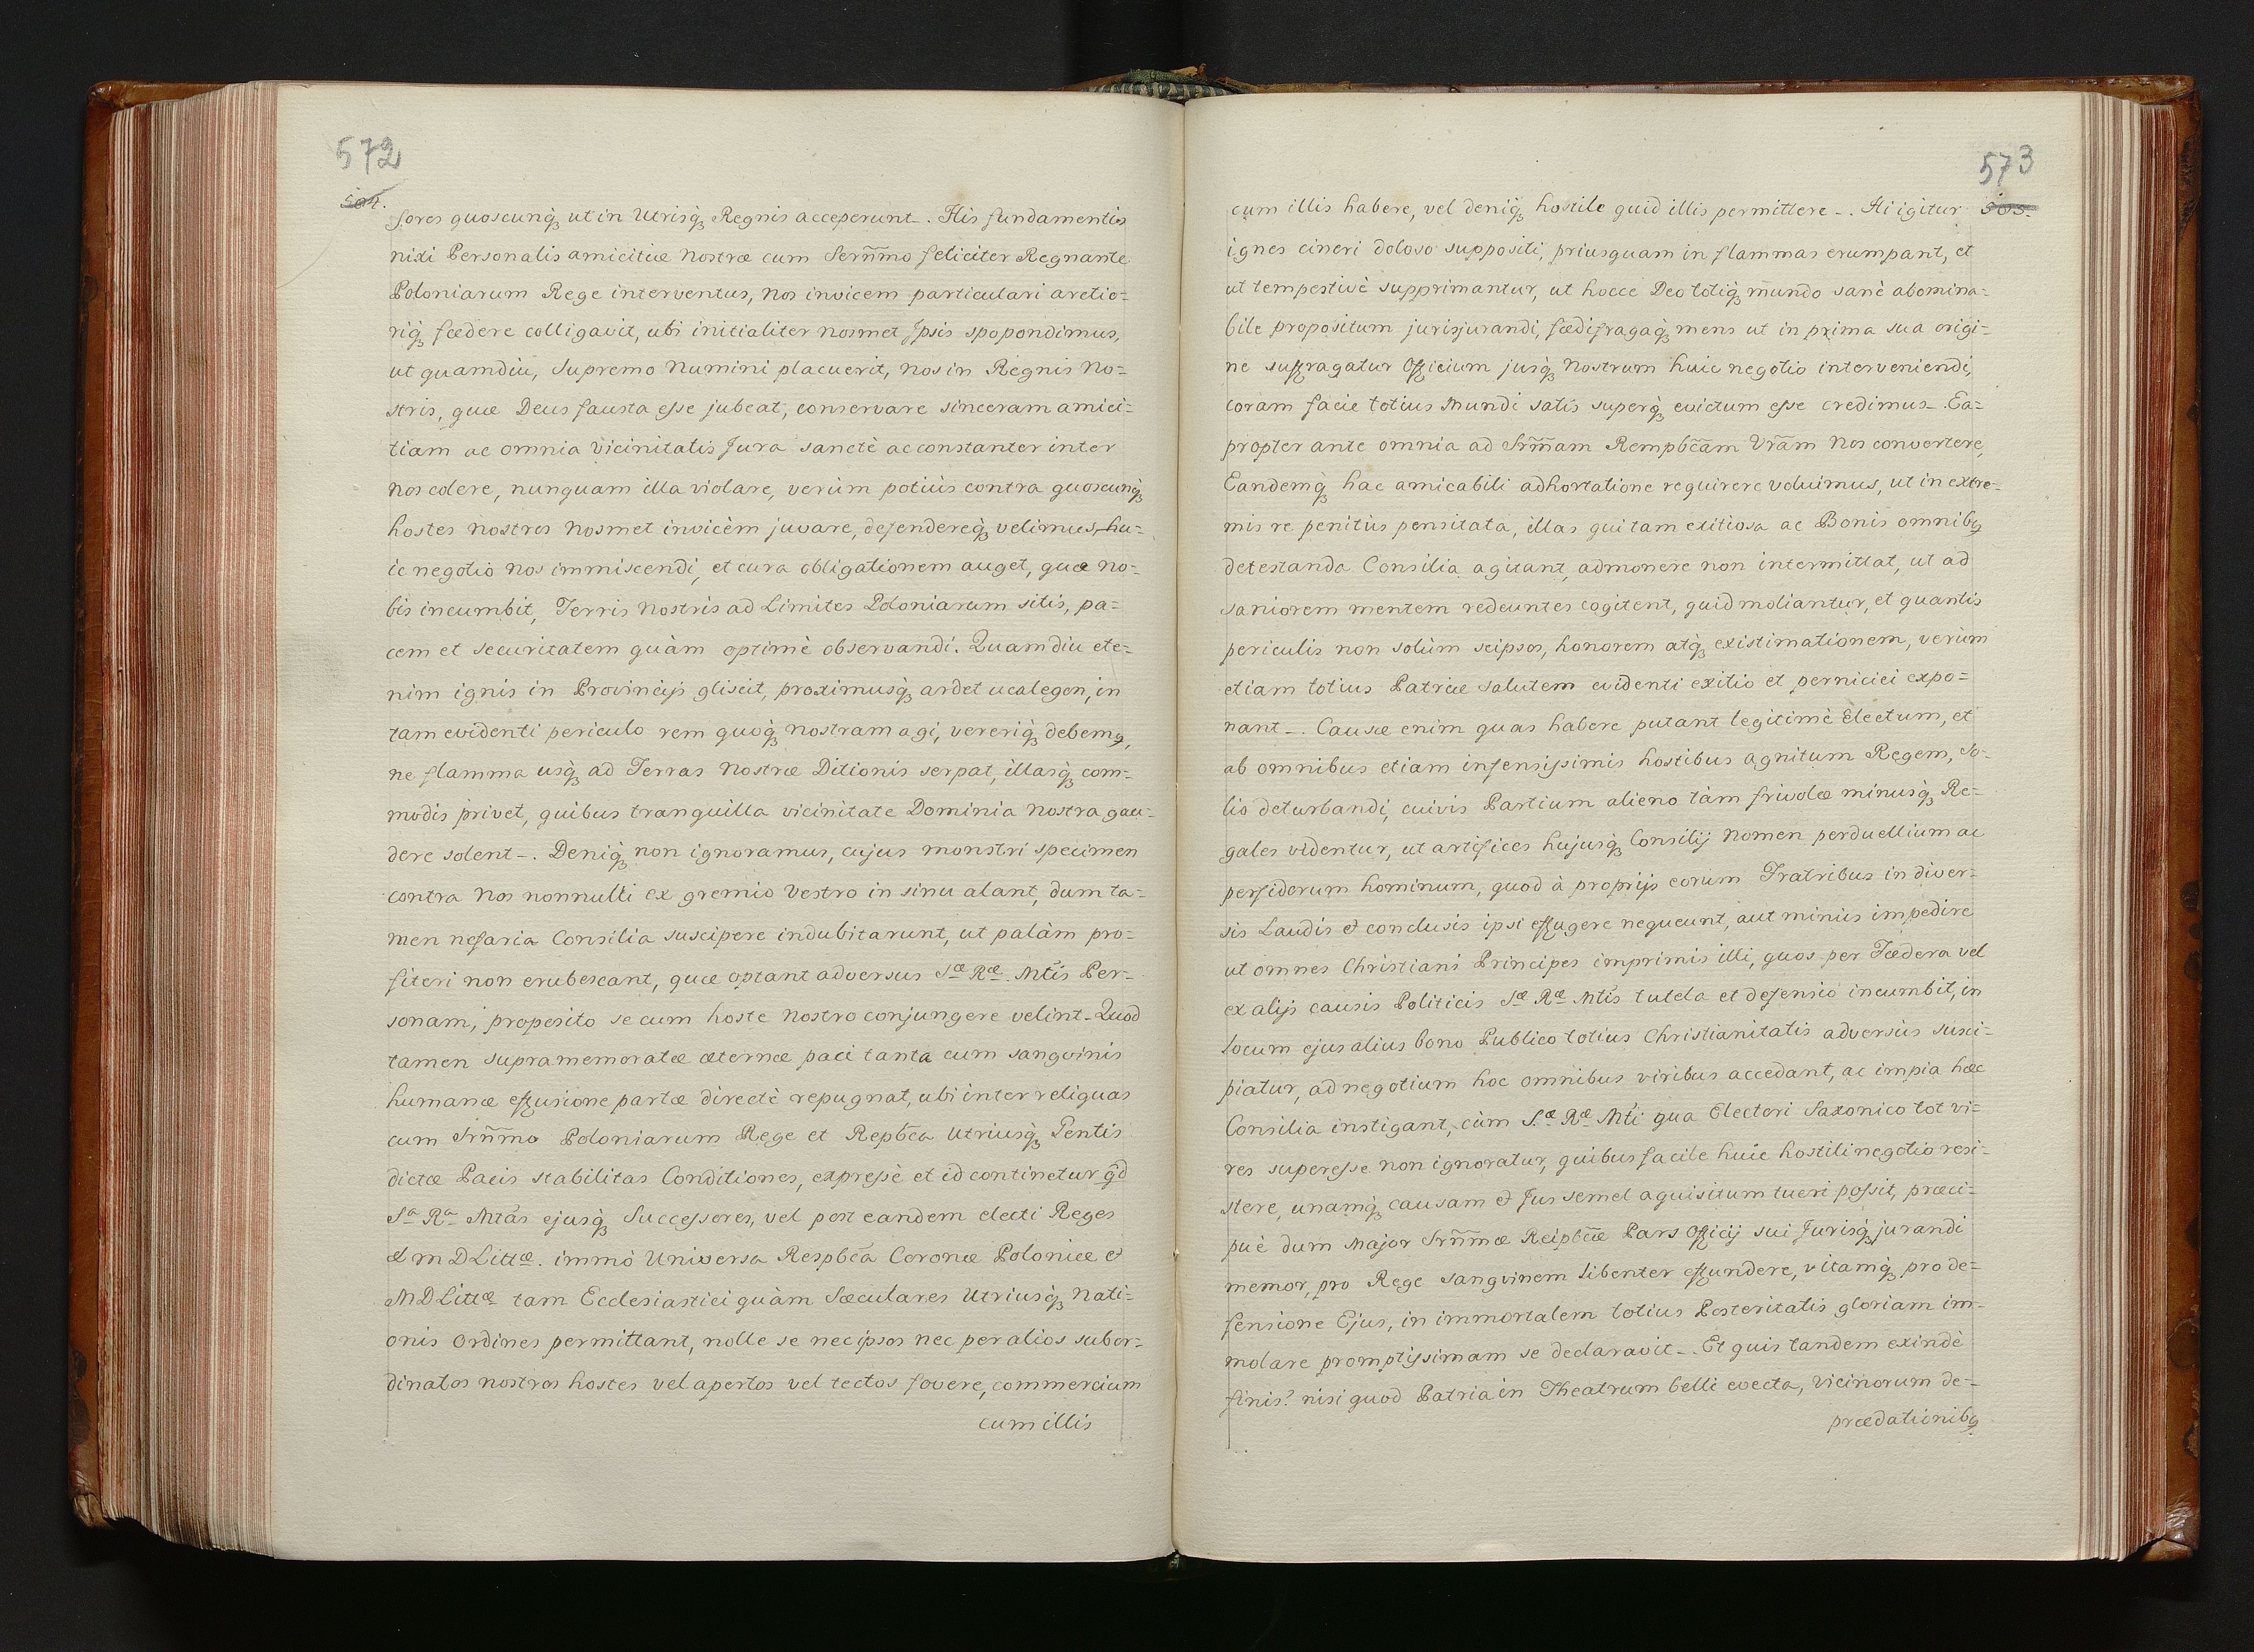 572
504.
sores quoscunq̀ꝫ ut in Utrisq̀ꝫ Regnis acceperunt_. His fundamentis
nixi Personalis amicitiæ Nostræ cum Serñmo feliciter Regnante
Poloniarum Rege interventus, nos invicem particulari arctio=
riq̀ꝫ fœdere colligavit, ubi initialiter nosmet Ipsis spopondimus,
ut quamdiu, Supremo Numini placuerit, nos in Regnis No=
stris, quæ Deus fausta esse jubeat, conservare sinceram amici=
tiam ac omnia Vicinitatis Jura sanctè ac constanter inter
nos colere, nunquam illa violare, verùm potiùs contra quoscunq̀ꝫ
hostes nostros nosmet invicèm juvare, defendereq̀ꝫ velimus, hu=
ic negotio nos immiscendi, et cura obligationem auget, quæ no=
bis incumbit, Terris Nostris ad Limites Poloniarum sitis, pa=
cem et securitatem quàm optimè observandi. Quamdiu ete=
nim ignis in Provincijs gliscit, proximusq̀ꝫ ardet ucalegon, in
tam evidenti periculo rem quoq̀ꝫ nostram agi, vereriq̀ꝫ debemꝯ,
ne flamma usq̀ꝫ ad Terras Nostræ Ditionis serpat, illasq̀ꝫ com=
modis privet, quibus tranquilla vicinitate Dominia Nostra gau=
dere solent_. Deniq̀ꝫ non ignoramus, cujus monstri specimen
contra Nos nonnulli ex gremio Vestro in sinu alant, dum ta=
men nefaria Consilia suscipere indubitarunt, ut palàm pro=
fiteri non erubescant, quæ optant adversus Sæ Ræ. Mtis Per=
sonam, proposito se cum hoste Nostro conjungere velint_ Quod
tamen supramemoratæ æternæ paci tanta cum sangvinis
humanæ effusione partæ directè repugnat, ubi inter reliquas
cum Srñmo Poloniarum Rege et Repb̃ca Utriusq̀ꝫ Gentis
dictæ Pacis stabilitas Conditiones, expressè et id continetur q̃d
Sa Ra Mtas ejusq̀ꝫ Successores, vel post eandem electi Reges
& M D Littæ. immò Universa Respb̃ca Coronæ Poloniæ &
M D Littæ tam Ecclesiastici quàm Sæculares Utriusq̀ꝫ Nati=
onis Ordines permittant, nolle se nec ipsos nec per alios subor=
dinatos nostros hostes vel apertos vel tectos fovere, commercium
cum illis
573
505.
cum illis habere, vel deniq̀ꝫ hostile quid illis permittere_. Hi igitur
ignes cineri doloso suppositi, priusquam in flammas erumpant, et
ut tempestivè supprimantur, ut hocce Deo totiq̀ꝫ mundo sanè abomina=
bile propositum jurisjurandi, fœdifragaq̀ꝫ mens ut in prima sua origi=
ne suffragatur Officium jusq̀ꝫ Nostrum huic negotio interveniendi,
coram facie totius Mundi satis superq̀ꝫ evictum esse credimus_. Ea=
propter ante omnia ad Srm̃am Rempb̃cam Vrãm Nos convertere,
Eandemq̀ꝫ hac amicabili adhortatione requirere voluimus, ut in extre=
mis re penitùs pensitata, illas qui tam exitiosa ac Bonis omnibꝯ
detestanda Consilia agitant, admonere non intermittat, ut ad
saniorem mentem redeuntes cogitent, quid moliantur, et quantis
periculis non solùm seipsos, honorem atq̀ꝫ existimationem, verùm
etiam totius Patriæ Salutem evidenti exitio et perniciei expo=
nant_. Causæ enim quas habere putant legitimè Electum, et
ab omnibus etiam infensissimis hostibus agnitum Regem, So=
lio deturbandi, cuivis Partium alieno tàm frivolæ minusq̀ꝫ Re=
gales videntur, ut artifices hujusq̀ꝫ Consilij Nomen perduellium ac
perfidorum hominum, quod à proprijs eorum Fratribus in diver=
sis Laudis & conclusis ipsi effugere nequeunt, aut minùs impedire
ut omnes Christiani Principes imprimis illi, quos per Fœdera vel
ex alijs causis Politicis Sæ Ræ Mtis tutela et defensio incumbit, in
locum ejus alius bono Publico totius Christianitatis adversùs susci=
piatur, ad negotium hoc omnibus viribus accedant, ac impia hæc
Consilia instigant, cùm S.æ Ræ Mti qua Electori Saxonico tot vi=
res superesse non ignoratur, quibus facile huic hostili negotio resi=
stere, unamq̀ꝫ causam & Jus semel aquisitum tueri possit, præci=
puè dum Major Srñmæ Reipb̃cæ Pars Officij sui Jurisq̀ꝫ jurandi
memor, pro Rege sangvinem libenter effundere, vitamq̀ꝫ pro de=
fensione Ejus, in immortalem totius Posteritatis gloriam im=
molare promptissimam se declaravit_. Et quis tandem exindè
finis? nisi quod Patria in Theatrum belli evecta, vicinorum de=
prædationibꝯ